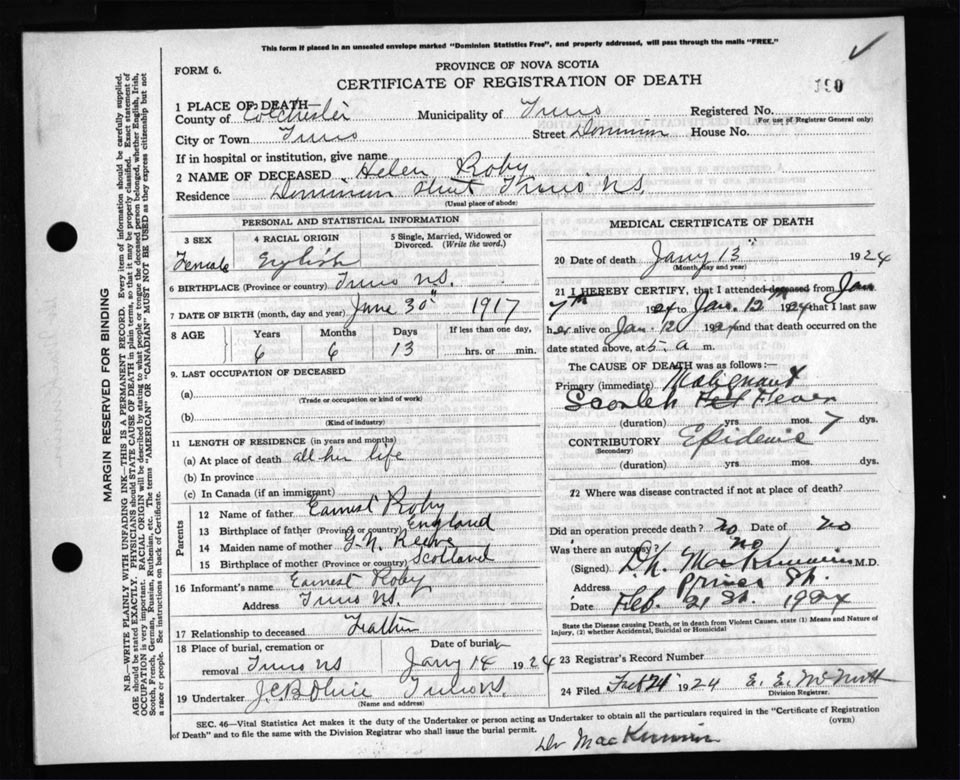 This form if placed in an unsealed envelope marked "Dominion Statistics Free", and properly addressed, will pass through the mails "FREE."
PROVINCE OF NOVA SCOTIA
FORM 6.
CERTIFICATE OF REGISTRATION OF DEATH
190
1 PLACE OF DEATH—
County of Colchester Municipality of Truro Registered No.
(For use of Registrar General only)
City or Town Truro Street Dominion House No.
If in hospital or institution, give name
2 NAME OF DECEASED Helen Roby
Residence Dominion Street Truro N.S.
(Usual place of abode)
PERSONAL AND STATISTICAL INFORMATION
3 SEX 4 RACIAL ORIGIN 5 Single, Married, Widowed or Divorced. (Write the word.)
Female English
6 BIRTHPLACE (Province or country) Truro N.S.
7 DATE OF BIRTH (month, day and year) June 30" 1917
8 AGE Years Months Days If less than one day,
6 6 13 hrs. or min.
9. LAST OCCUPATION OF DECEASED
(a)
(Trade or occupation or kind of work)
(b)
(Kind of industry)
11 LENGTH OF RESIDENCE (in years and months)
(a) At place of death all her life
(b) In province
(c) In Canada (if an immigrant)
Parents
12 Name of father Earnest Roby
13 Birthplace of father (Province or country) England
14 Maiden name of mother G. N. Reeve
15 Birthplace of mother (Province or country) Scotland
16 Informant's name Earnest Roby
Address Truro N.S.
17 Relationship to deceased Father
18 Place of burial, cremation or Date of burial
removal Truro N S Jany 14 1924
19 Undertaker Truro N.S.
(Name and address)
MEDICAL CERTIFICATE OF DEATH
20 Date of death Jany 13" 1924
(Month, day and year)
21 I HEREBY CERTIFY, that I attended deceased from Jan
7th 1924 to Jan. 12th 1924 that I last saw
her alive on Jan. 12 1924 and that death occurred on the
date stated above, at 5. a m.
The CAUSE OF DEATH was as follows:
Primary (immediate) Malignant
Fever
(duration) yrs mos. 7 dys.
CONTRIBUTORY Epidemic
(Secondary)
(duration) yrs mos. dys.
22 Where was disease contracted if not at place of death?
Did an operation precede death? no Date of no
Was there an autopsy? no
(Signed) MacKinnon M.D.
Address Prince St.
Date Feb. 21st. 1924
State the Disease causing Death, or in death from Violent Causes, state (1) Means and Nature of
Injury, (2) whether Accidental, Suicidal or Homicidal
23 Registrar's Record Number
24 Filed 1924 E. E.
Division Registrar.
SEC. 46—Vital Statistics Act makes it the duty of the Undertaker or person acting as Undertaker to obtain all the particulars required in the "Certificate of Registration
of Death" and to file the same with the Division Registrar who shall issue the burial permit.
(OVER)
Dr MacKinnon
MARGIN RESERVED FOR BINDING
N.B.—WRITE PLAINLY WITH UNFADING INK—THIS IS A PERMANENT RECORD. Every item of information should be carefully supplied.
AGE should be stated EXACTLY. PHYSICIANS should STATE CAUSE OF DEATH in plain terms, so that it may be properly classified. Exact statement of
OCCUPATION is very important. RACIAL ORIGIN will be described by stating to what people or tongue the deceased person belonged, whether English, Irish,
Scotch, French, German, Russian, Ruthenian, etc. The terms "AMERICAN" OR "CANADIAN" MUST NOT BE USED as they express citizenship but not
a race or people. See instructions on back of Certificate.